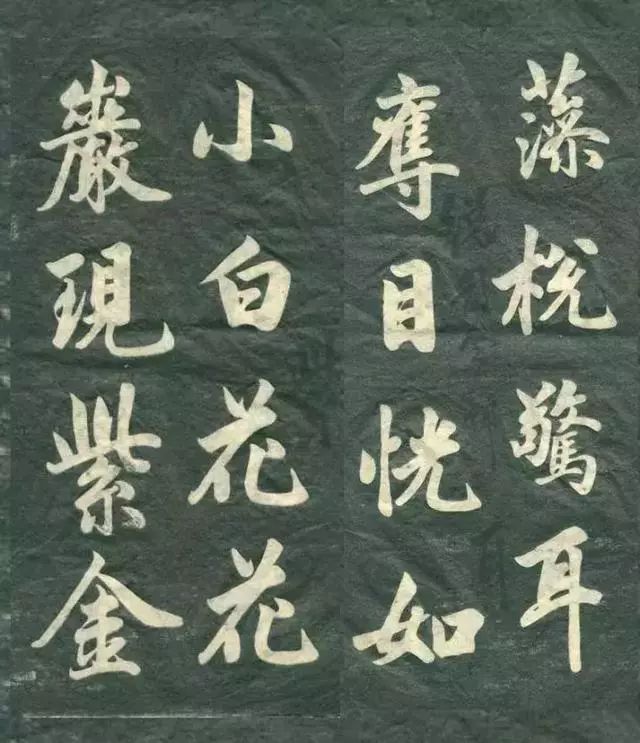 藻棁驚耳
奪目恍如
小白花花
巖現紫金